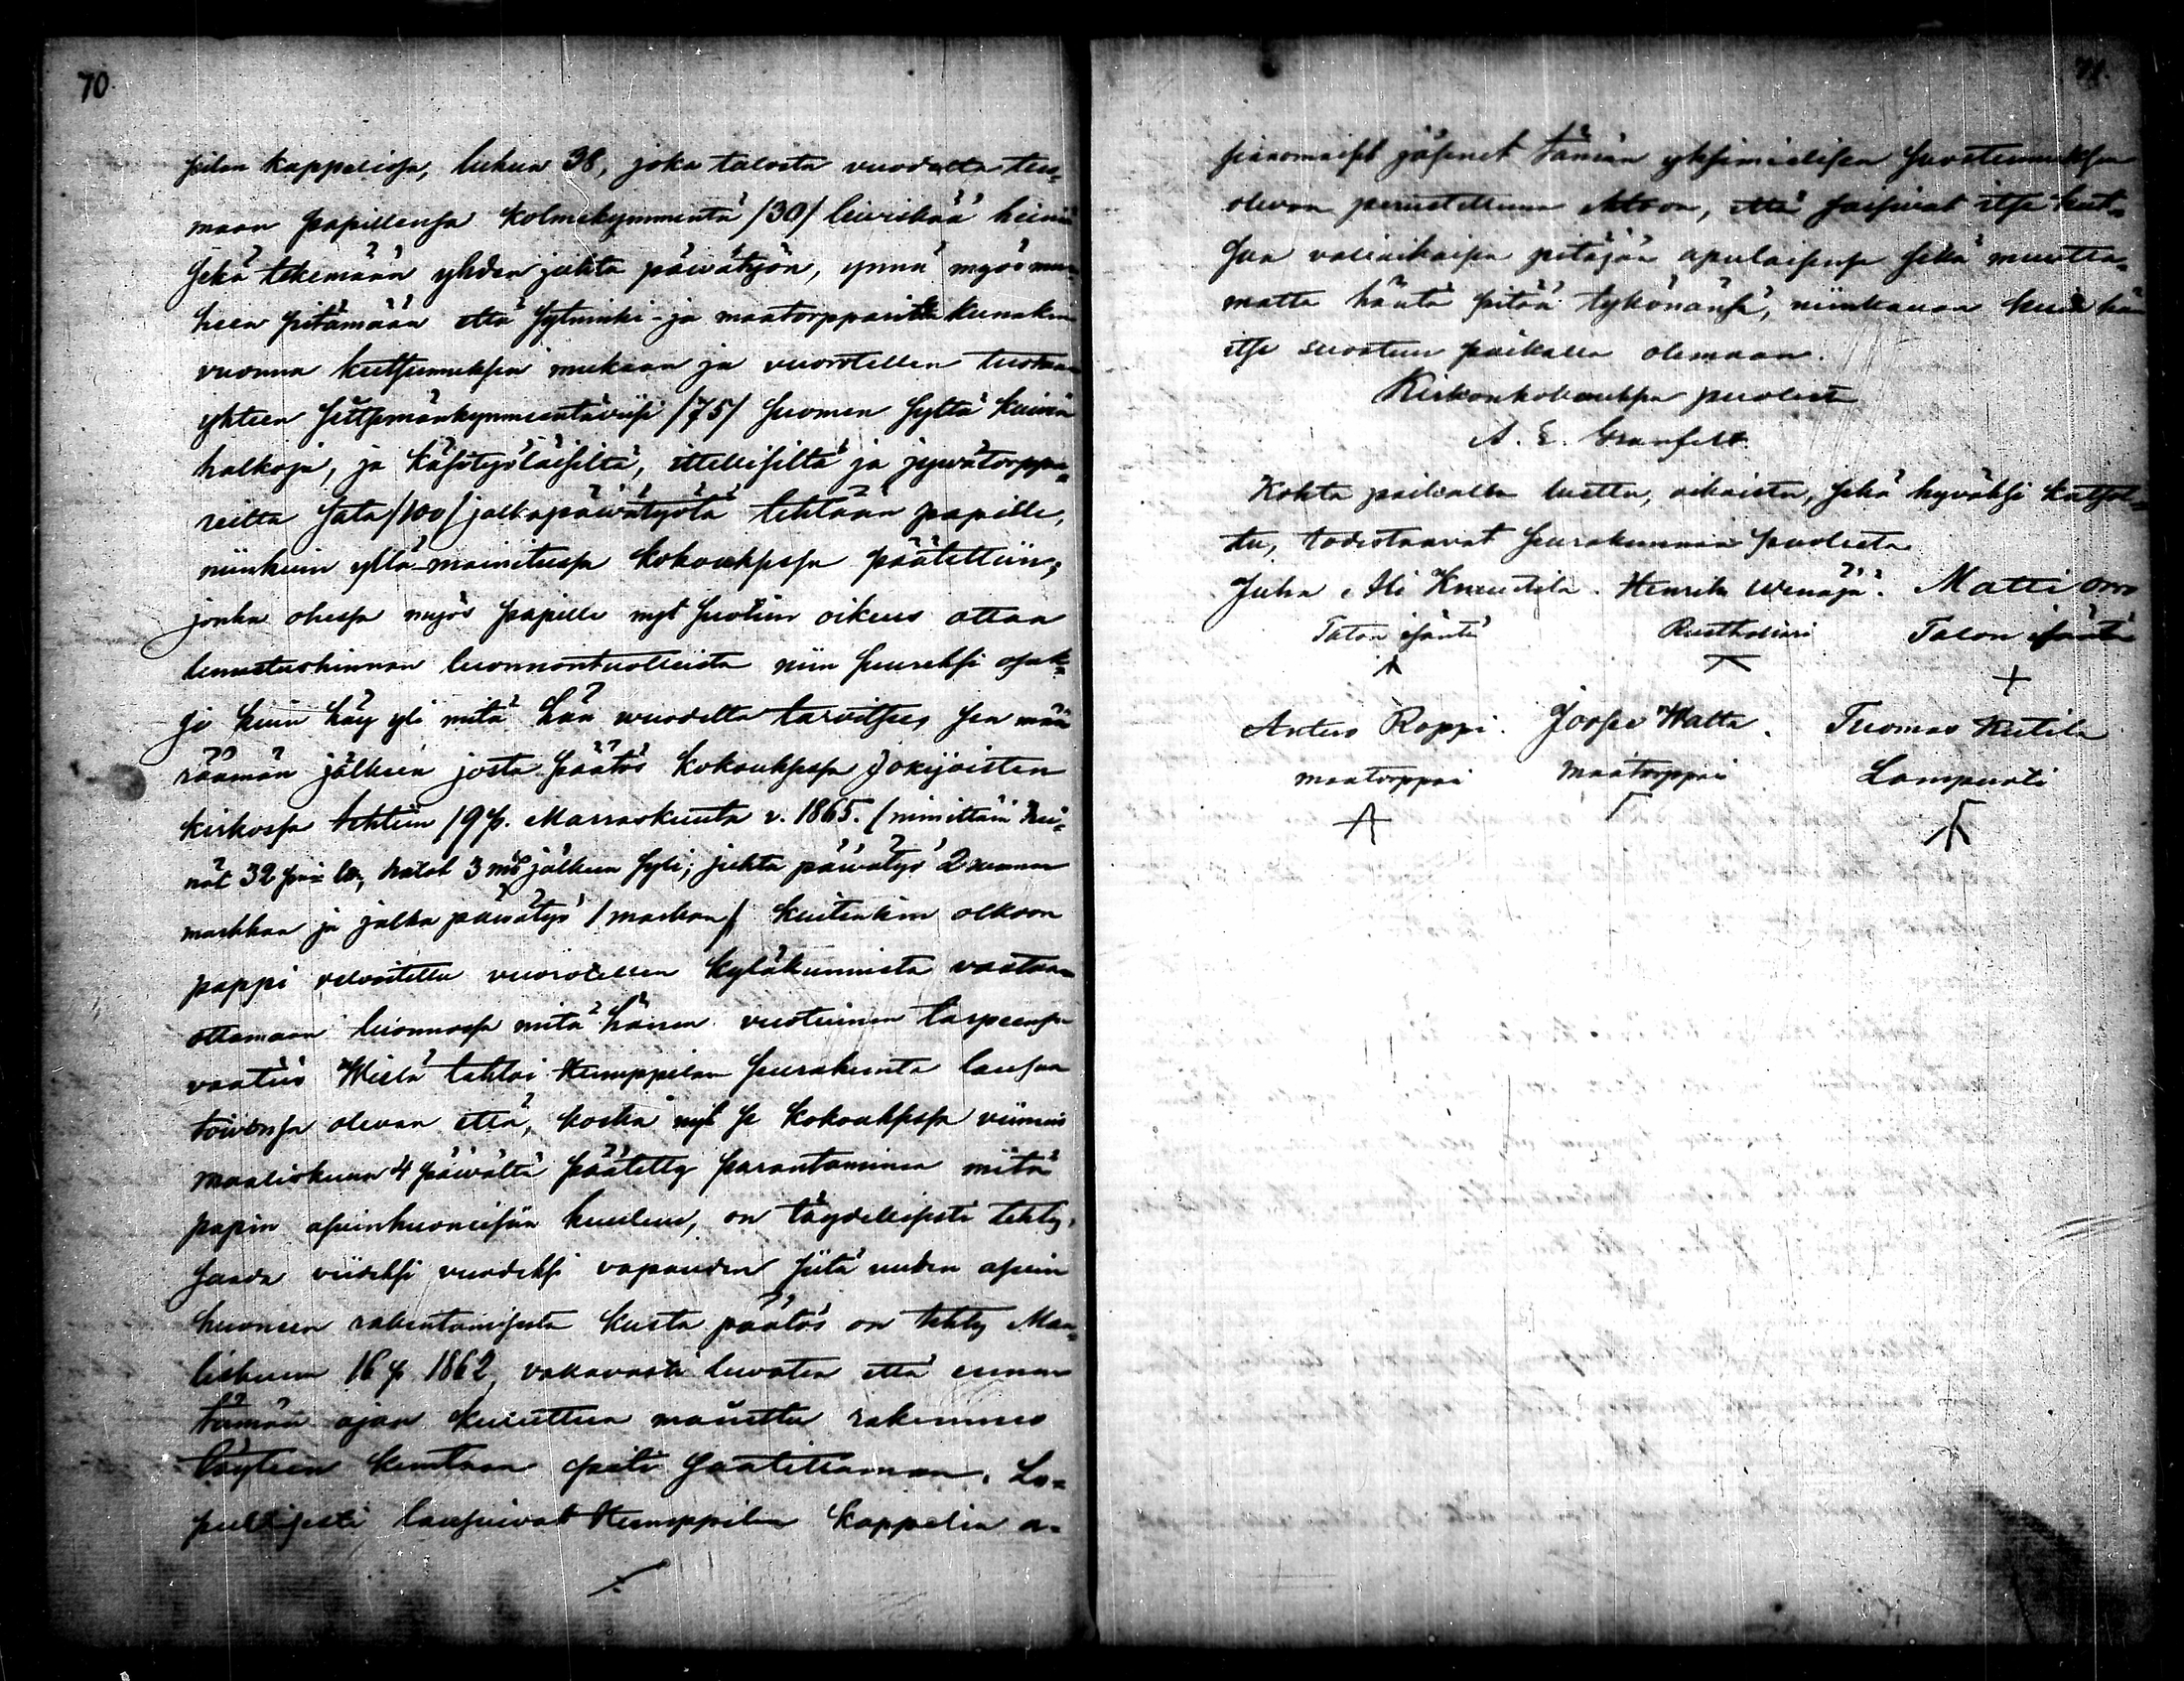 70.
pilan kappelissa, lukua 38, joka talosta vuodelta tuo-
maan papillensa kolmekymmentä /30/ leiviskää heiniä
sekä tekemään yhden juhta päivätyön, ynnä myös
heen pitämään että sytninki- ja maatorpparitta kunakin
vuonna kutsumuksen mukaan ja vuorotellen tuokaan
yhteen seitsemänkymmentäviisi /75/ suomen syltä kuivia
halkoja, ja käsityöläisiltä, itsellisiltä ja jywätorppa-
reilta sata /100/ jalkapäivätyötä tehtään papille,
niinkuin yllä-mainitussa kokouksessa päätettiin;
jonka ohessa myös papille nyt suotiin oikeus ottaa
lunastushinnan luonnontuotteista niin suureksi osak-
si kuin käy yli mitä hän wuodelta tarvitsee, sen mää
räämän jälkeen josta päätös kokouksessa Jokijoisten
kirkossa tehtiin /9 p. Marraskuuta v. 1865. / nimittäin hei-
nät 32 halot 3 mk jälkeen syli; juhta päivätyö 2
markkaa ja jalka päivätyö 1 markan / kuitenkin olkoon
pappi velvoitettu vuorotellen kyläkunnista vastaan
ottamaan luonnossa mitä hänen vuotuinen tarpeensa
vaatii Wielä tahtoi Humppilan seurakunta lausua
toivonsa olevan että, koska nyt se kokouksessa viimeis
maaliskuun 4 päivältä päätetty parantaminen mitä
papin asuinhuoneisiin kuuluu, on täydellisesti tehty,
saada viideksi vuodeksi vapauden siitä uuden asuin
huoneen rakentamisesta kusta päätös on tehty Maa-
liskuun 16 p 1862, vakavasti luvaten että ennen
tämän ajan kuluttua mainittu rakennus
täyteen kuntoon piti saatettaman. Lo-
pullisesti lausuivat Humppilan kappelin a-
71.
sianomaiset jäsenet tämän yksimielisen suostumuksen
olevan perustettuna ehtoon, että saisivat itse kut-
sua väliaikaisen pitäjän apulaisensa sekä muutta-
matta häntä pitää tykönänsä, niinkauan kuin hän
itse suostuu paikalla olemaan.
Kirkonkokouksen puolesta
A. E. Granfelt.
Kohta paikalla luettu, oikaistu, sekä hyväksi katsot-
tu, todistaavat seurakunnan puolesta
Juha Ali Knuutila. Henrik Wenäjä. Matti Orro
Talon isäntä Rusthollari Talon isäntä
Antus Roppi. Joosef Watta. Tuomas Kutila
maatorppari maatorppari Lampuoti